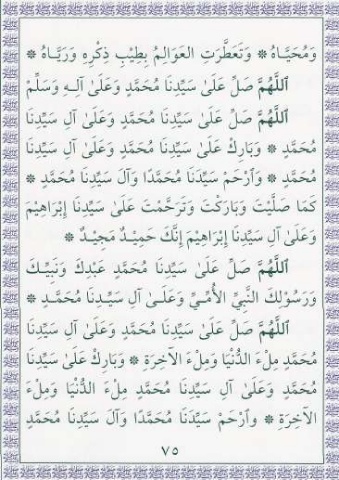 وَمُحَيَّاهُ ۞ وَتَعَطَّرَتِ الْعَوَالِمُ بِطِيْبِ ذِكْرِهِ وَرَيَّاهُ ۞
اَللَّهُمَّ صَلِّ عَلَىٰ سَيِّدِنَا مُحَمَّدٍ وَعَلَىٰ آلِهِ وَسَلِّمْ
اَللَّهُمَّ صَلِّ عَلَىٰ سَيِّدِنَا مُحَمَّدٍ وَعَلَىٰ آلِ سَيِّدِنَا
مُحَمَّدٍ ۞ وَبَارِكْ عَلَىٰ سَيِّدِنَا مُحَمَّدٍ وَعَلَىٰ آلِ سَيِّدِنَا
مُحَمَّدٍ ۞ وَارْحَمْ سَيِّدَنَا مُحَمَّدًا وَآلَ سَيِّدِنَا مُحَمَّدٍ ۞
كَمَا صَلَّيْتَ وَبَارَكْتَ وَتَرَحَّمْتَ عَلَىٰ سَيِّدِنَا إِبْرَاهِيْمَ
وَعَلَىٰ آلِ سَيِّدِنَا إِبْرَاهِيْمَ إِنَّكَ حَمِيْدٌ مَجِيْدٌ ۞
اَللَّهُمَّ صَلِّ عَلَىٰ سَيِّدِنَا مُحَمَّدٍ عَبْدِكَ وَنَبِيِّكَ
وَرَسُوْلِكَ النَّبِيِّ الْأُمِّيِّ وَعَلَىٰ آلِ سَيِّدِنَا مُحَمَّدٍ ۞
اَللَّهُمَّ صَلِّ عَلَىٰ سَيِّدِنَا مُحَمَّدٍ وَعَلَىٰ آلِ سَيِّدِنَا
مُحَمَّدٍ مِلْءَ الدُّنْيَا وَمِلْءَ الْآخِرَةِ ۞ وَبَارِكْ عَلَىٰ سَيِّدِنَا
مُحَمَّدٍ وَعَلَىٰ آلِ سَيِّدِنَا مُحَمَّدٍ مِلْءَ الدُّنْيَا وَمِلْءَ
الْآخِرَةِ ۞ وَارْحَمْ سَيِّدَنَا مُحَمَّدًا وَآلَ سَيِّدِنَا مُحَمَّدٍ
٧٥